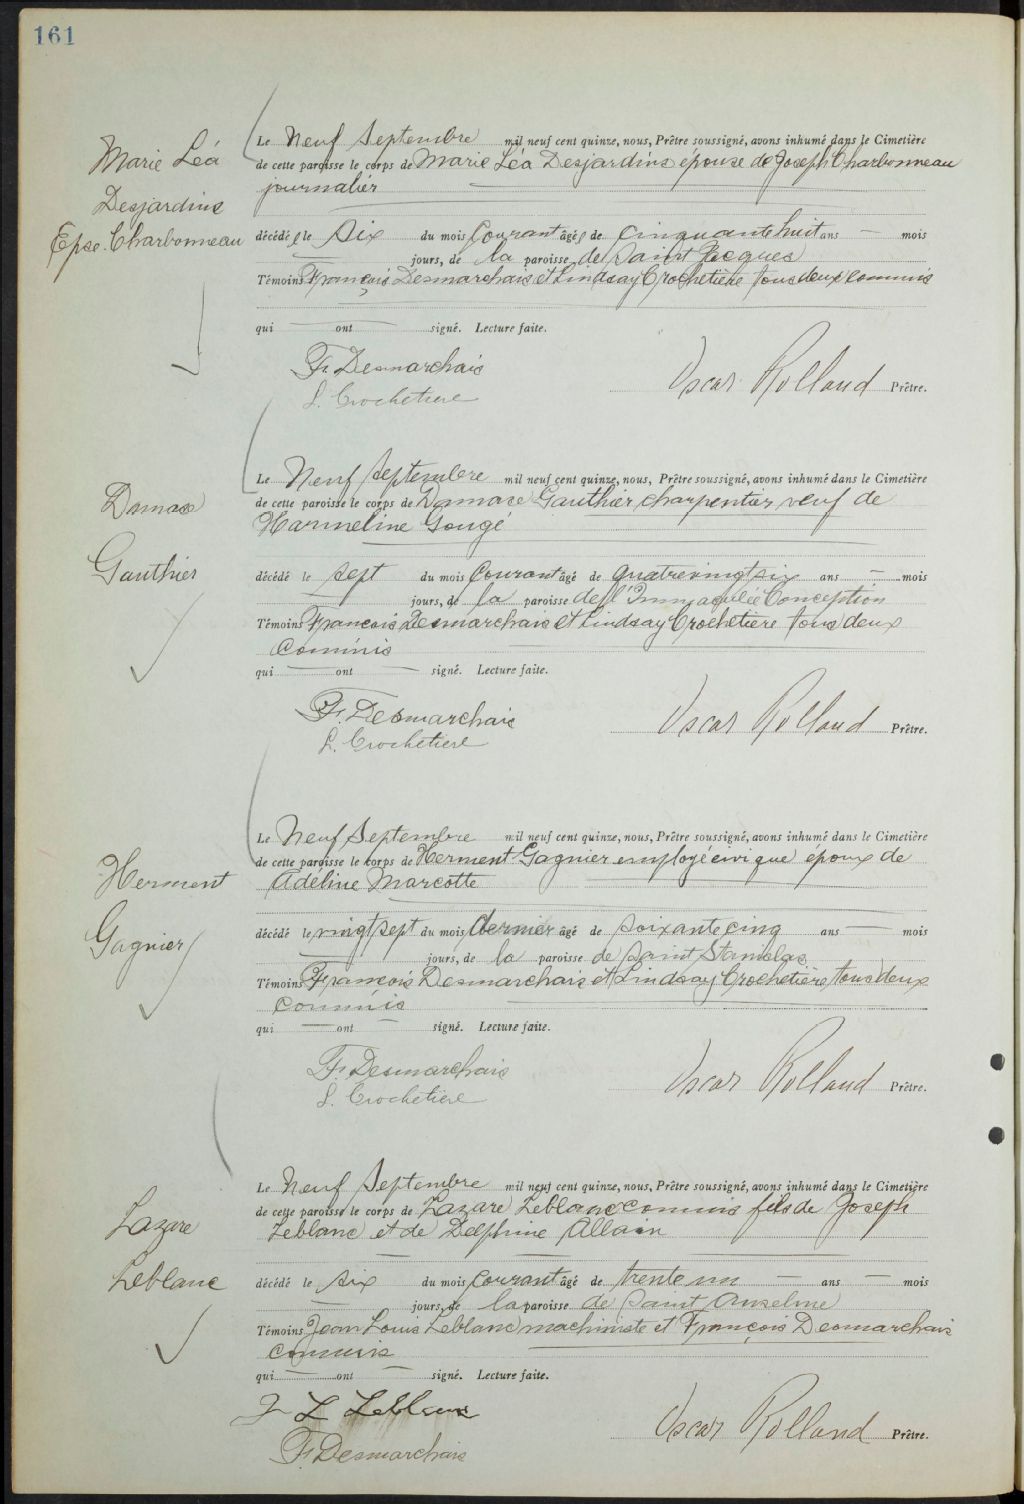 161
Marie Léa
Desjardins
Epse. Charbonneau
Le Neuf Septembre mil neuf cent quinze, nous, Prêtre soussigné, avons inhumé dans le Cimetière
de cette paroisse le corps de Marie Léa Desjardins épouse de Joseph Charbonneau
journalier
décédé e le six du mois courant âgé e de cinquante huit ans — mois
— jours, de la paroisse de Saint Jacques
Témoins François Desmarchais et Lindsay Crochetière tous deux commis
qui — ont — signé. Lecture faite.
F. Desmarchais
L. Crochetiere
Oscar Rolland Prêtre.
Damase
Gauthier
Le Neuf septembre mil neuf cent quinze, nous, Prêtre soussigné, avons inhumé dans le Cimetière
de cette paroisse le corps de Damase Gauthier charpentier veuf de
Harmeline Gougé
décédé le sept du mois courant âgé de quatrevingt six ans — mois
— jours, de la paroisse de l'Immaculée Conception
Témoins François Desmarchais et Lindsay Crochetière tous deux
commis
qui — ont — signé. Lecture faite.
F. Desmarchais
L. Crochetiere
Oscar Rolland Prêtre.
Herment
Gagnier
Le Neuf Septembre mil neuf cent quinze, nous, Prêtre soussigné, avons inhumé dans le Cimetière
de cette paroisse le corps de Herment Gagnier employé civique époux de
Adéline Marcotte
décédé le vingt sept du mois dernier âgé de soixante cinq ans — mois
— jours, de la paroisse de Saint Stanislas
Témoins François Desmarchais et Lindsay Crochetière, tous deux
commis
qui — ont — signé. Lecture faite.
F. Desmarchais
L. Crochetiere
Oscar Rolland Prêtre.
Lazare
Leblanc
Le Neuf Septembre mil neuf cent quinze, nous, Prêtre soussigné, avons inhumé dans le Cimetière
de cette paroisse le corps de Lazare Leblanc commis fils de Joseph
Leblanc et de Delphine Allain
décédé le six du mois courant âgé de trente un — ans — mois
— jours, de la paroisse de Saint Anselme
Témoins Jean Louis Leblanc machiniste et François Desmarchais
commis
qui — ont — signé. Lecture faite.
J L Leblanc
F. Desmarchais
Oscar Rolland Prêtre.